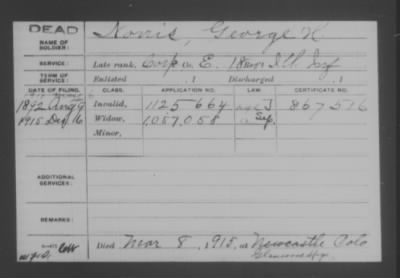 DEAD
NAME OF SOLDIER: Norris, George K
SERVICE: Late rank, Corp Co. E, 18 Reg't Ill. Inf
TERM OF SERVICE: Enlisted , 1 Discharged , 1
DATE OF FILING. CLASS. APPLICATION NO. LAW. CERTIFICATE NO.
1892 Aug 9 Invalid, 1125664 J 867576
1915 Dec 16 Widow, 1,057,058 Sep.
Minor,
ADDITIONAL SERVICES:
REMARKS:
Died Mar 8, 1915, at Newcastle Colo